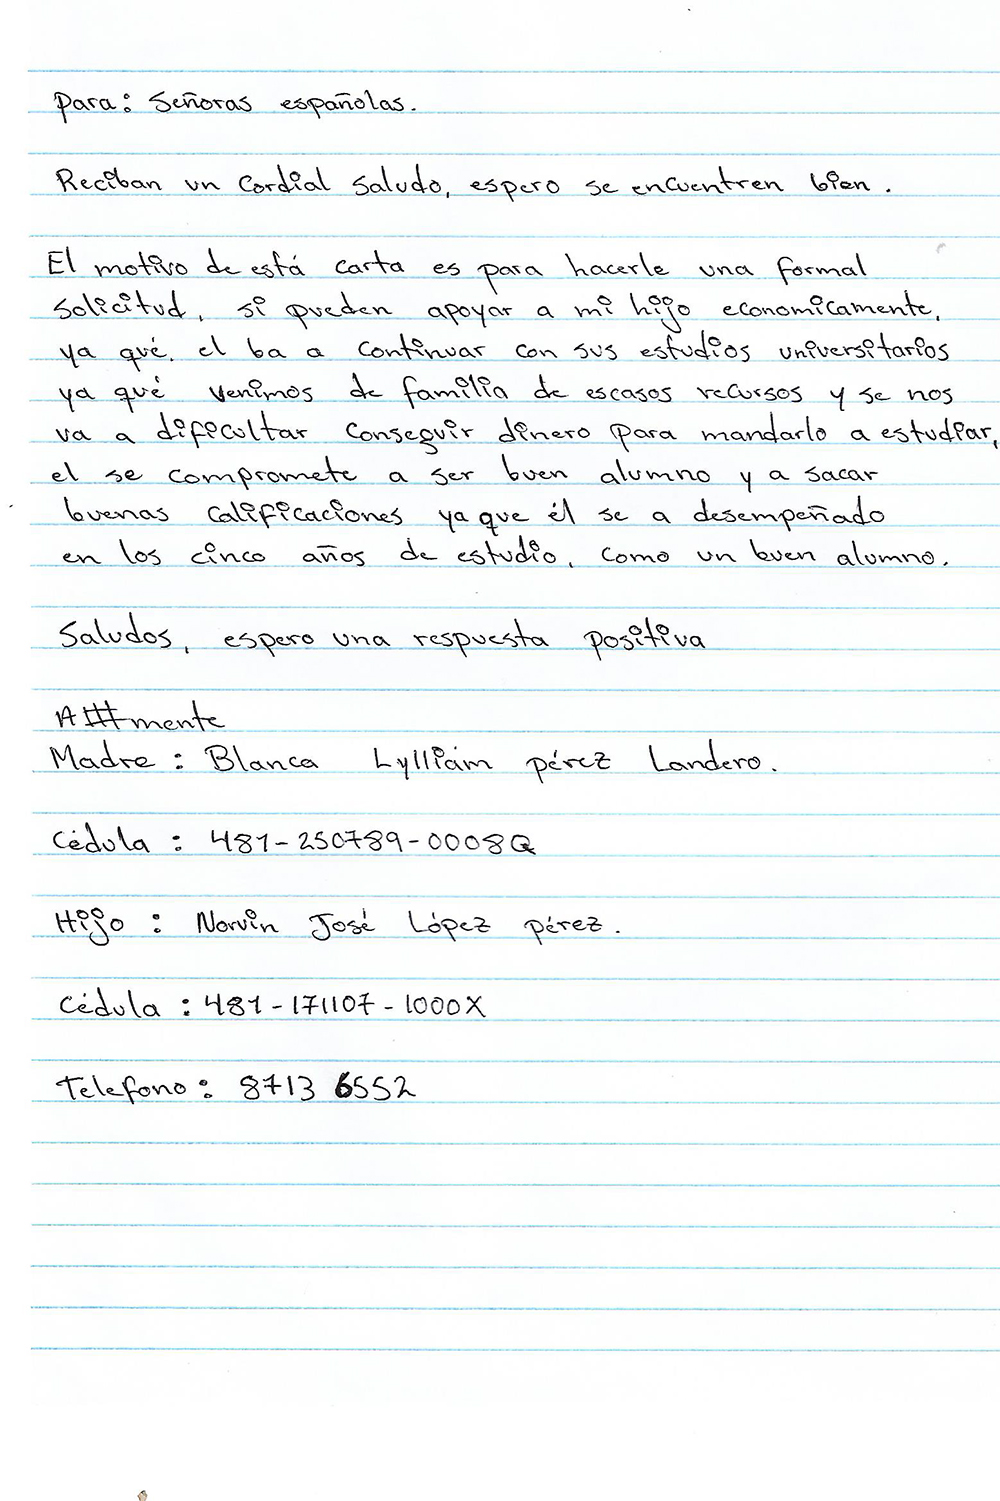 Para: Señoras españolas.
Reciban un Cordial Saludo, espero se encuentren bien.
El motivo de está carta es para hacerle una formal
solicitud, si pueden apoyar a mi hijo economicamente,
ya qué, el ba a continuar con sus estudios universitarios
ya qué venimos de familia de escasos recursos y se nos
va a dificultar conseguir dinero para mandarlo a estudiar,
el se compromete a ser buen alumno y a sacar
buenas calificaciones ya que él se a desempeñado
en los cinco años de estudio, como un buen alumno.
Saludos, espero una respuesta positiva
Attmente
Madre: Blanca Lylliám pérez Landero.
Cédula: 481-250789-0008Q
Hijo: Norvin José López pérez.
Cédula: 481-171107-1000X
Telefono: 8713 6552